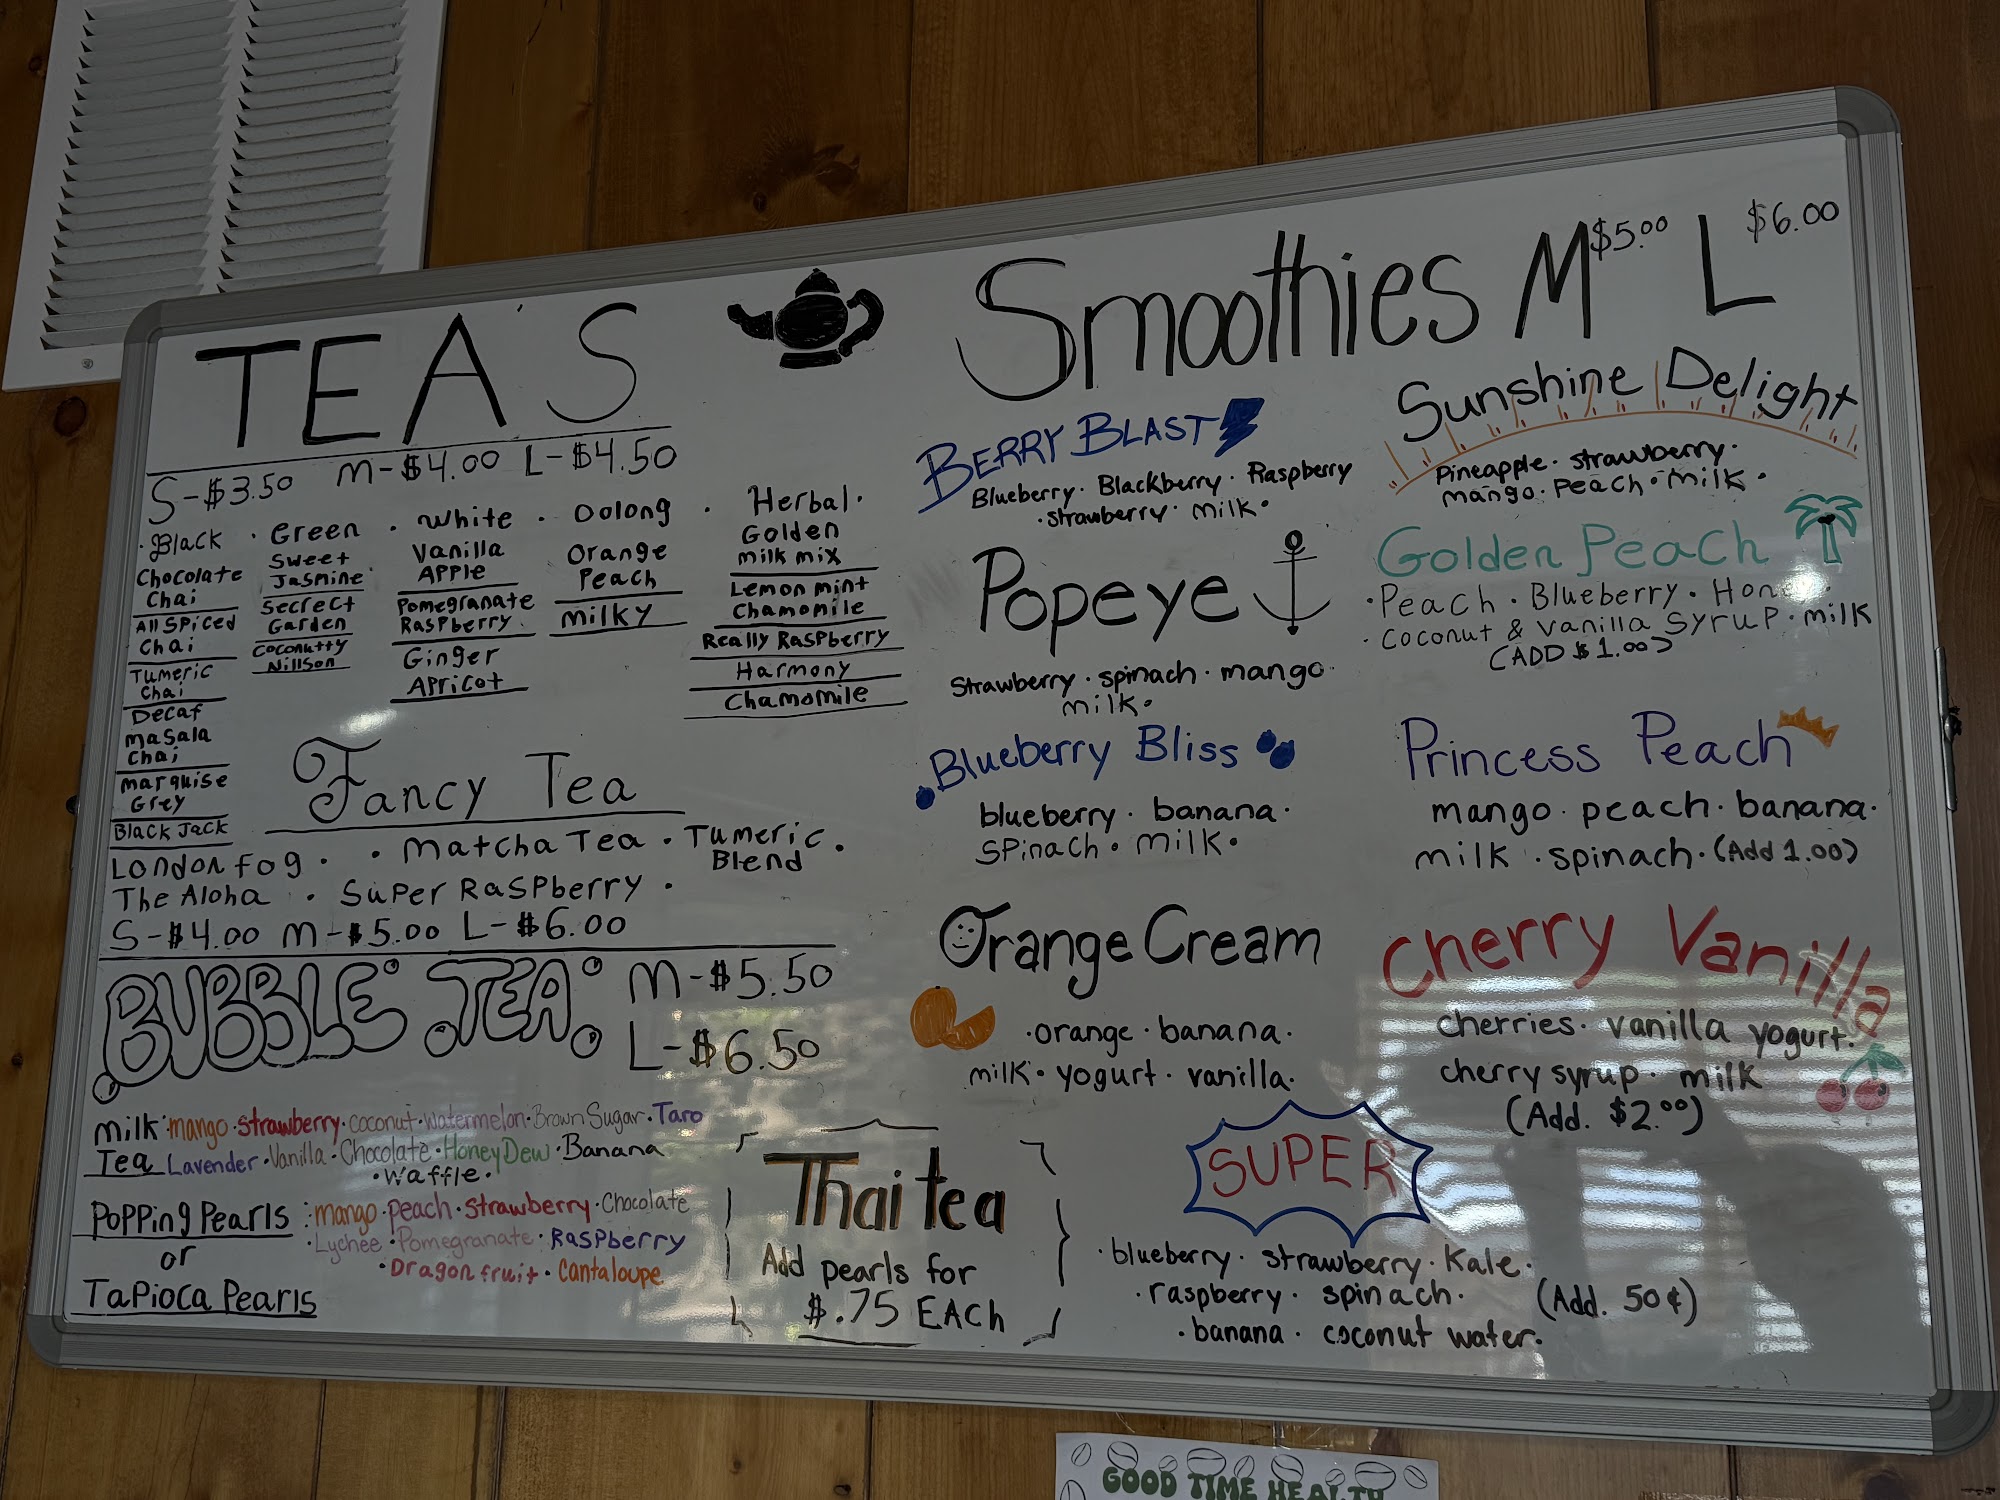 TEA'S
S-$3.50 M-$4.00 L-$4.50
· Black · Green · White · Oolong · Herbal ·
Chocolate
Chai
All Spiced
Chai
Tumeric
Chai
Decaf
Masala
Chai
Marquise
Grey
Black Jack
Sweet
Jasmine
Secrect
Garden
Coconutty
Nillson
Vanilla
Apple
Pomegranate
Raspberry
Ginger
Apricot
Orange
Peach
Milky
Golden
Milk Mix
Lemon mint
Chamomile
Really Raspberry
Harmony
Chamomile
Fancy Tea
London Fog · · Matcha Tea · Tumeric Blend ·
The Aloha · Super Raspberry ·
S-$4.00 M-$5.00 L-$6.00
BUBBLE TEA M-$5.50
L-$6.50
Milk Tea
mango · strawberry · coconut · watermelon · Brown Sugar · Taro
Lavender · Vanilla · Chocolate · Honey Dew · Banana
· Waffle ·
Popping Pearls : mango · peach · strawberry · Chocolate
or
· Lychee · Pomegranate · Raspberry
· Dragonfruit · Cantaloupe
Tapioca Pearls
Thai tea
Add pearls for
$.75 EACH
Smoothies M $5.00 L $6.00
BERRY BLAST
Blueberry · Blackberry · Raspberry
· strawberry · milk ·
Popeye
Strawberry · spinach · mango ·
milk ·
Blueberry Bliss
blueberry · banana ·
Spinach · milk ·
Orange Cream
· orange · banana ·
milk · yogurt · vanilla ·
Sunshine Delight
Pineapple · strawberry ·
mango · Peach · milk ·
Golden Peach
· Peach · Blueberry ·
· coconut & vanilla syrup · milk
(ADD $1.00)
Princess Peach
mango · peach · banana ·
milk · spinach · (Add 1.00)
Cherry Vanilla
cherries · vanilla yogurt ·
cherry syrup · milk
(Add. $2.00)
SUPER
· blueberry · strawberry · Kale ·
· raspberry · spinach · (Add. 50¢)
· banana · coconut water ·
GOOD TIME HEALTH